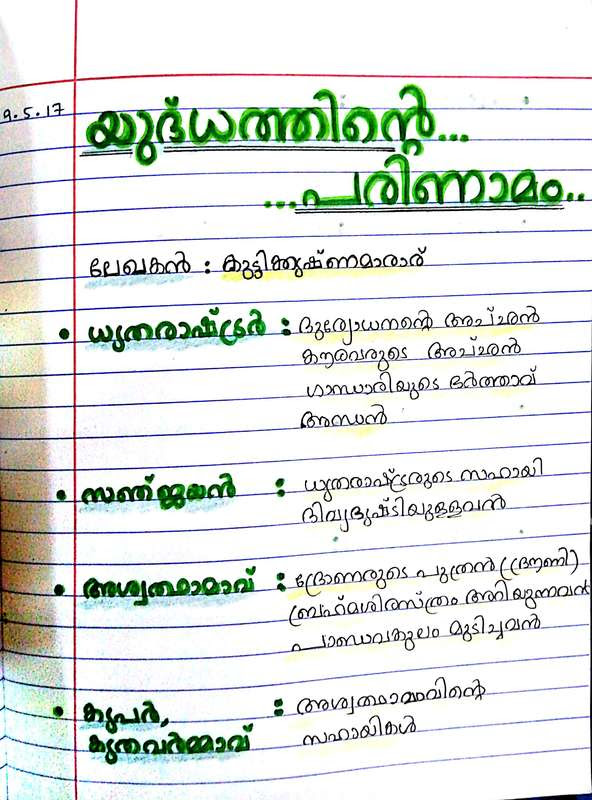 9.5.17
യുദ്ധത്തിന്റെ...
...പരിണാമം..
ലേഖകൻ : കുട്ടികൃഷ്ണമാരാര്
• ധൃതരാഷ്ട്രർ : ദുര്യോധനന്റെ അച്ഛൻ
കൗരവരുടെ അച്ഛൻ
ഗാന്ധാരിയുടെ ഭർത്താവ്
അന്ധൻ
• സഞ്ജയൻ : ധൃതരാഷ്ട്രരുടെ സഹായി
ദിവ്യദൃഷ്ടിയുള്ളവൻ
• അശ്വത്ഥാമാവ് : ദ്രോണരുടെ പുത്രൻ (ദ്രൗണി)
ബ്രഹ്മശിരസ്ത്രം അറിയുന്നവൻ
പാണ്ഡവകുലം മുടിച്ചവൻ
• കൃപർ, : അശ്വത്ഥാമാവിന്റെ
കൃതവർമ്മാവ് സഹായികൾ